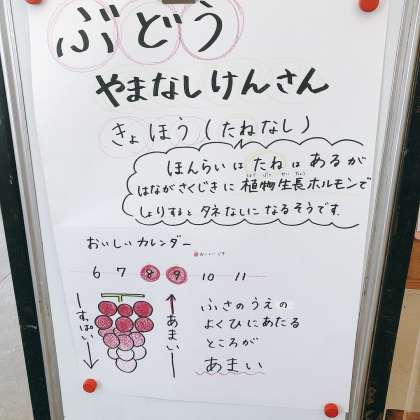 ぶどう
やまなしけんさん
きょほう(たねなし)
ほんらいは たねは あるが
はながさくじきに 植物生長ホルモンで
しょりすると タネなしに なるそうです。
おいしいカレンダー
6 7 8 9 10 11
すっぱい
あまい
ふさのうえの
よくひにあたる
ところが
あまい